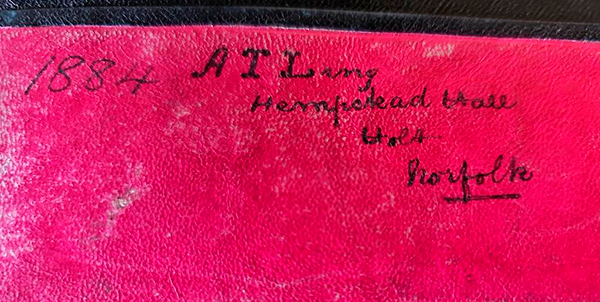 1884 A T Ling
Hempstead Hall
Holt
Norfolk